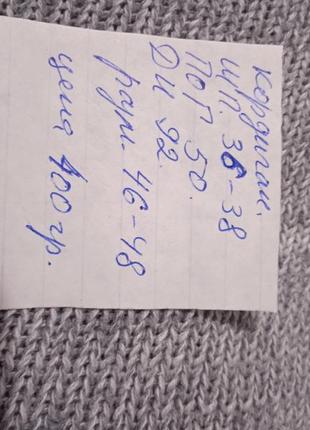 кардиган.
ШП. 36-38
ПОГ 50.
ДИ 92.
разм. 46-48
цена 400гр.